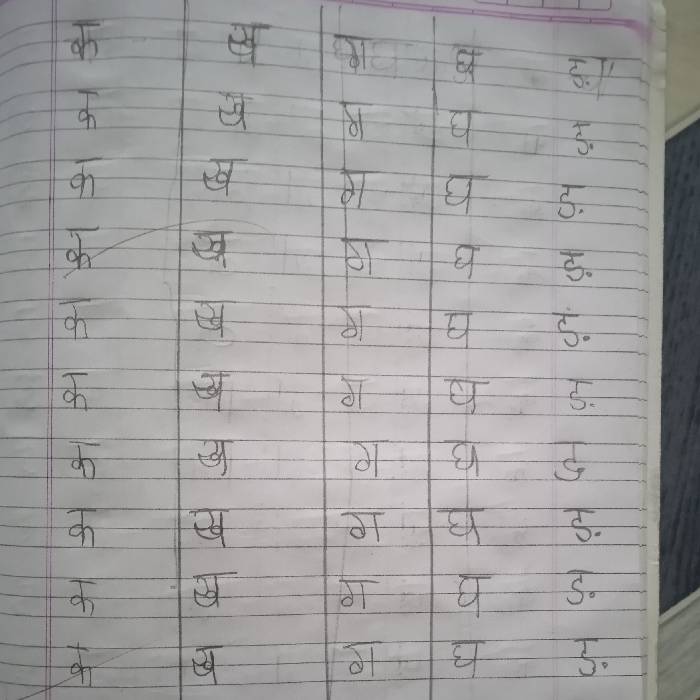 क ख ग घ ङ
क ख ग घ ङ
क ख ग घ ङ
क ख ग घ ङ
क ख ग घ ङ
क ख ग घ ङ
क ख ग घ ड
क ख ग घ ङ
क ख ग घ ङ
क ख ग घ ङ